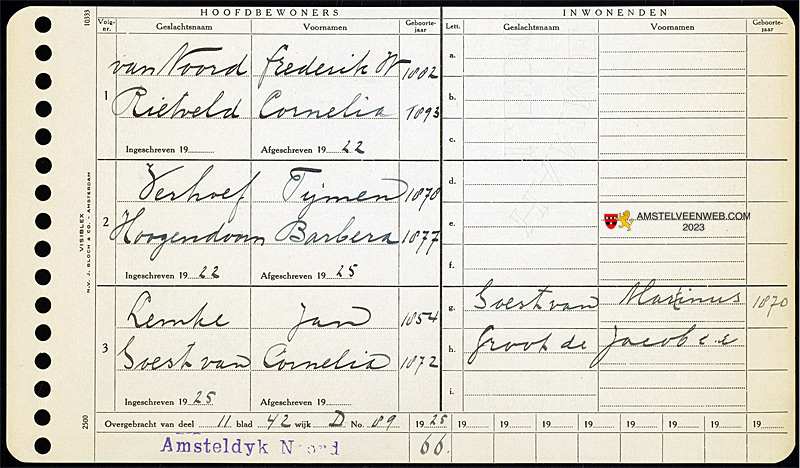 HOOFDBEWONERS
INWONENDEN
Volg-nr.
Geslachtsnaam
Voornamen
Geboorte-jaar
Lett.
Geslachtsnaam
Voornamen
Geboorte-jaar
10333
1
van Noord Frederik W 1882
Rietveld Cornelia 1893
Ingeschreven 19
Afgeschreven 19 22
2
Verhoef Tijmen 1870
Hoogendoorn Barbera 1877
Ingeschreven 19 22
Afgeschreven 19 25
3
Lemke Jan 1854
Soest van Cornelia 1872
Ingeschreven 19 25
Afgeschreven 19
a.
b.
c.
d.
e.
f.
g. Soest van Marinus 1870
h. Groot de
i.
AMSTELVEENWEB.COM
2023
VISIBLEX
N.V. J. BLOCH & CO. - AMSTERDAM
2500
Overgebracht van deel 11 blad 42 wijk D No. 89 19 25 19 19 19 19 19 19 19
Amsteldyk Noord 66.